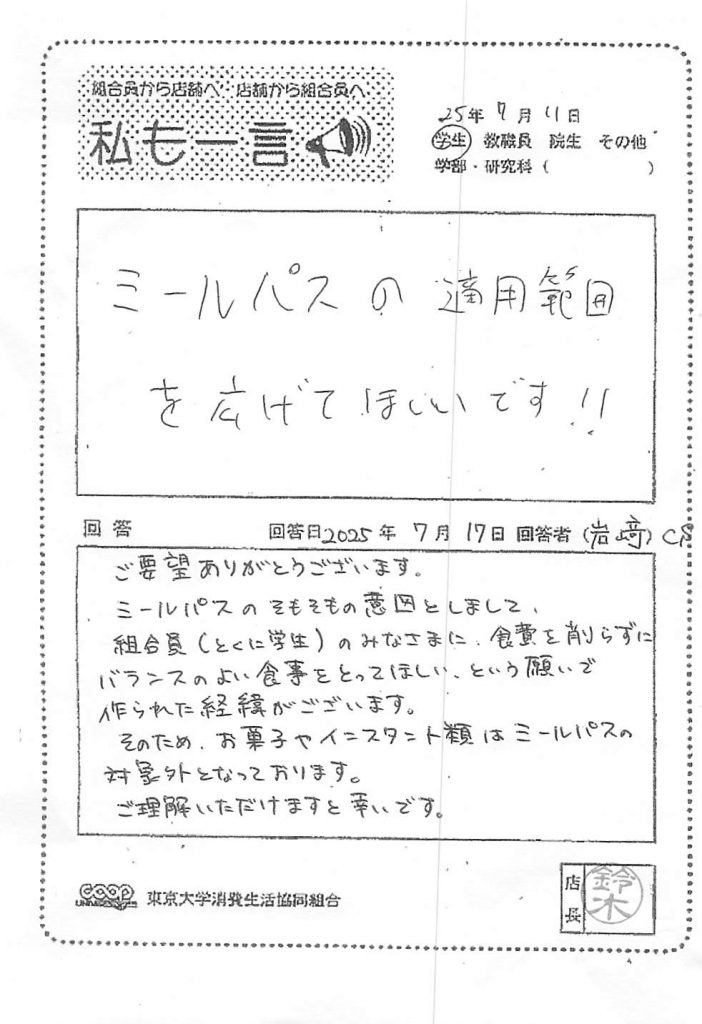 組合員から店舗へ 店舗から組合員へ
私も一言
25年 7月 11日
学生 教職員 院生 その他
学部・研究科 ( )
ミールパスの適用範囲
を広げてほしいです!!
回答 回答日2025年 7月 17日 回答者 (岩﨑)
ご要望ありがとうございます。
ミールパスのそもそもの意図としまして、
組合員(とくに学生)のみなさまに、食費を削らずに
バランスのよい食事をとってほしい、という願いで
作られた経緯がございます。
そのため、お菓子やインスタント類はミールパスの
対象外となっております。
ご理解いただけますと幸いです。
coop 東京大学消費生活協同組合
店長 鈴木